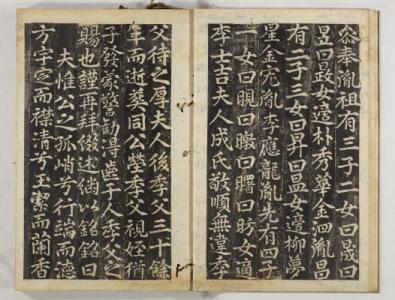 叅奉胤祖有三子二女曰晟曰
昱曰晸女適朴秀華金泗胤昌
有二子三女曰昇曰昷女適柳夢
星金宛胤李應龍胤光有四子
一女曰晛曰暾曰曙曰昉女適
李士吉夫人成氏敬順無違季
父待之厚夫人後季父三十餘
年而逝葬同公塋季父視姪猶
子發蒙警勸得齒于人季父之
賜也謹再拜綴述継以銘銘曰
夫惟公之孤峭兮行端而德
方宇宏而襟清兮玉潔而蘭香